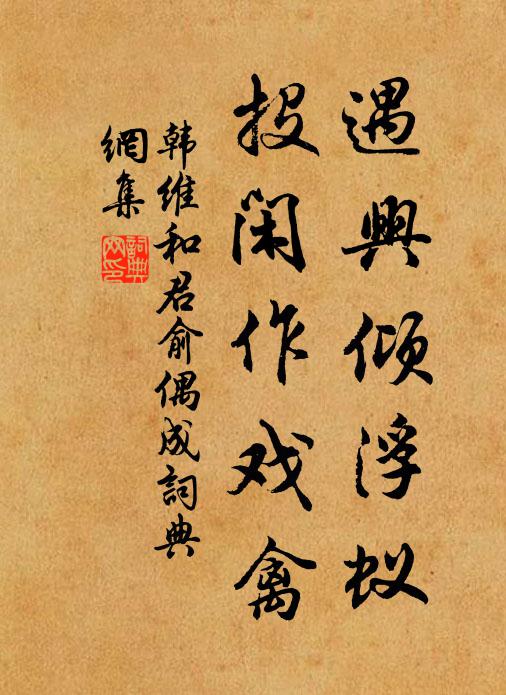 遇興傾浮蚁
投閑作戏禽
韩维和君俞偶成詞典
網集
詞典
网印